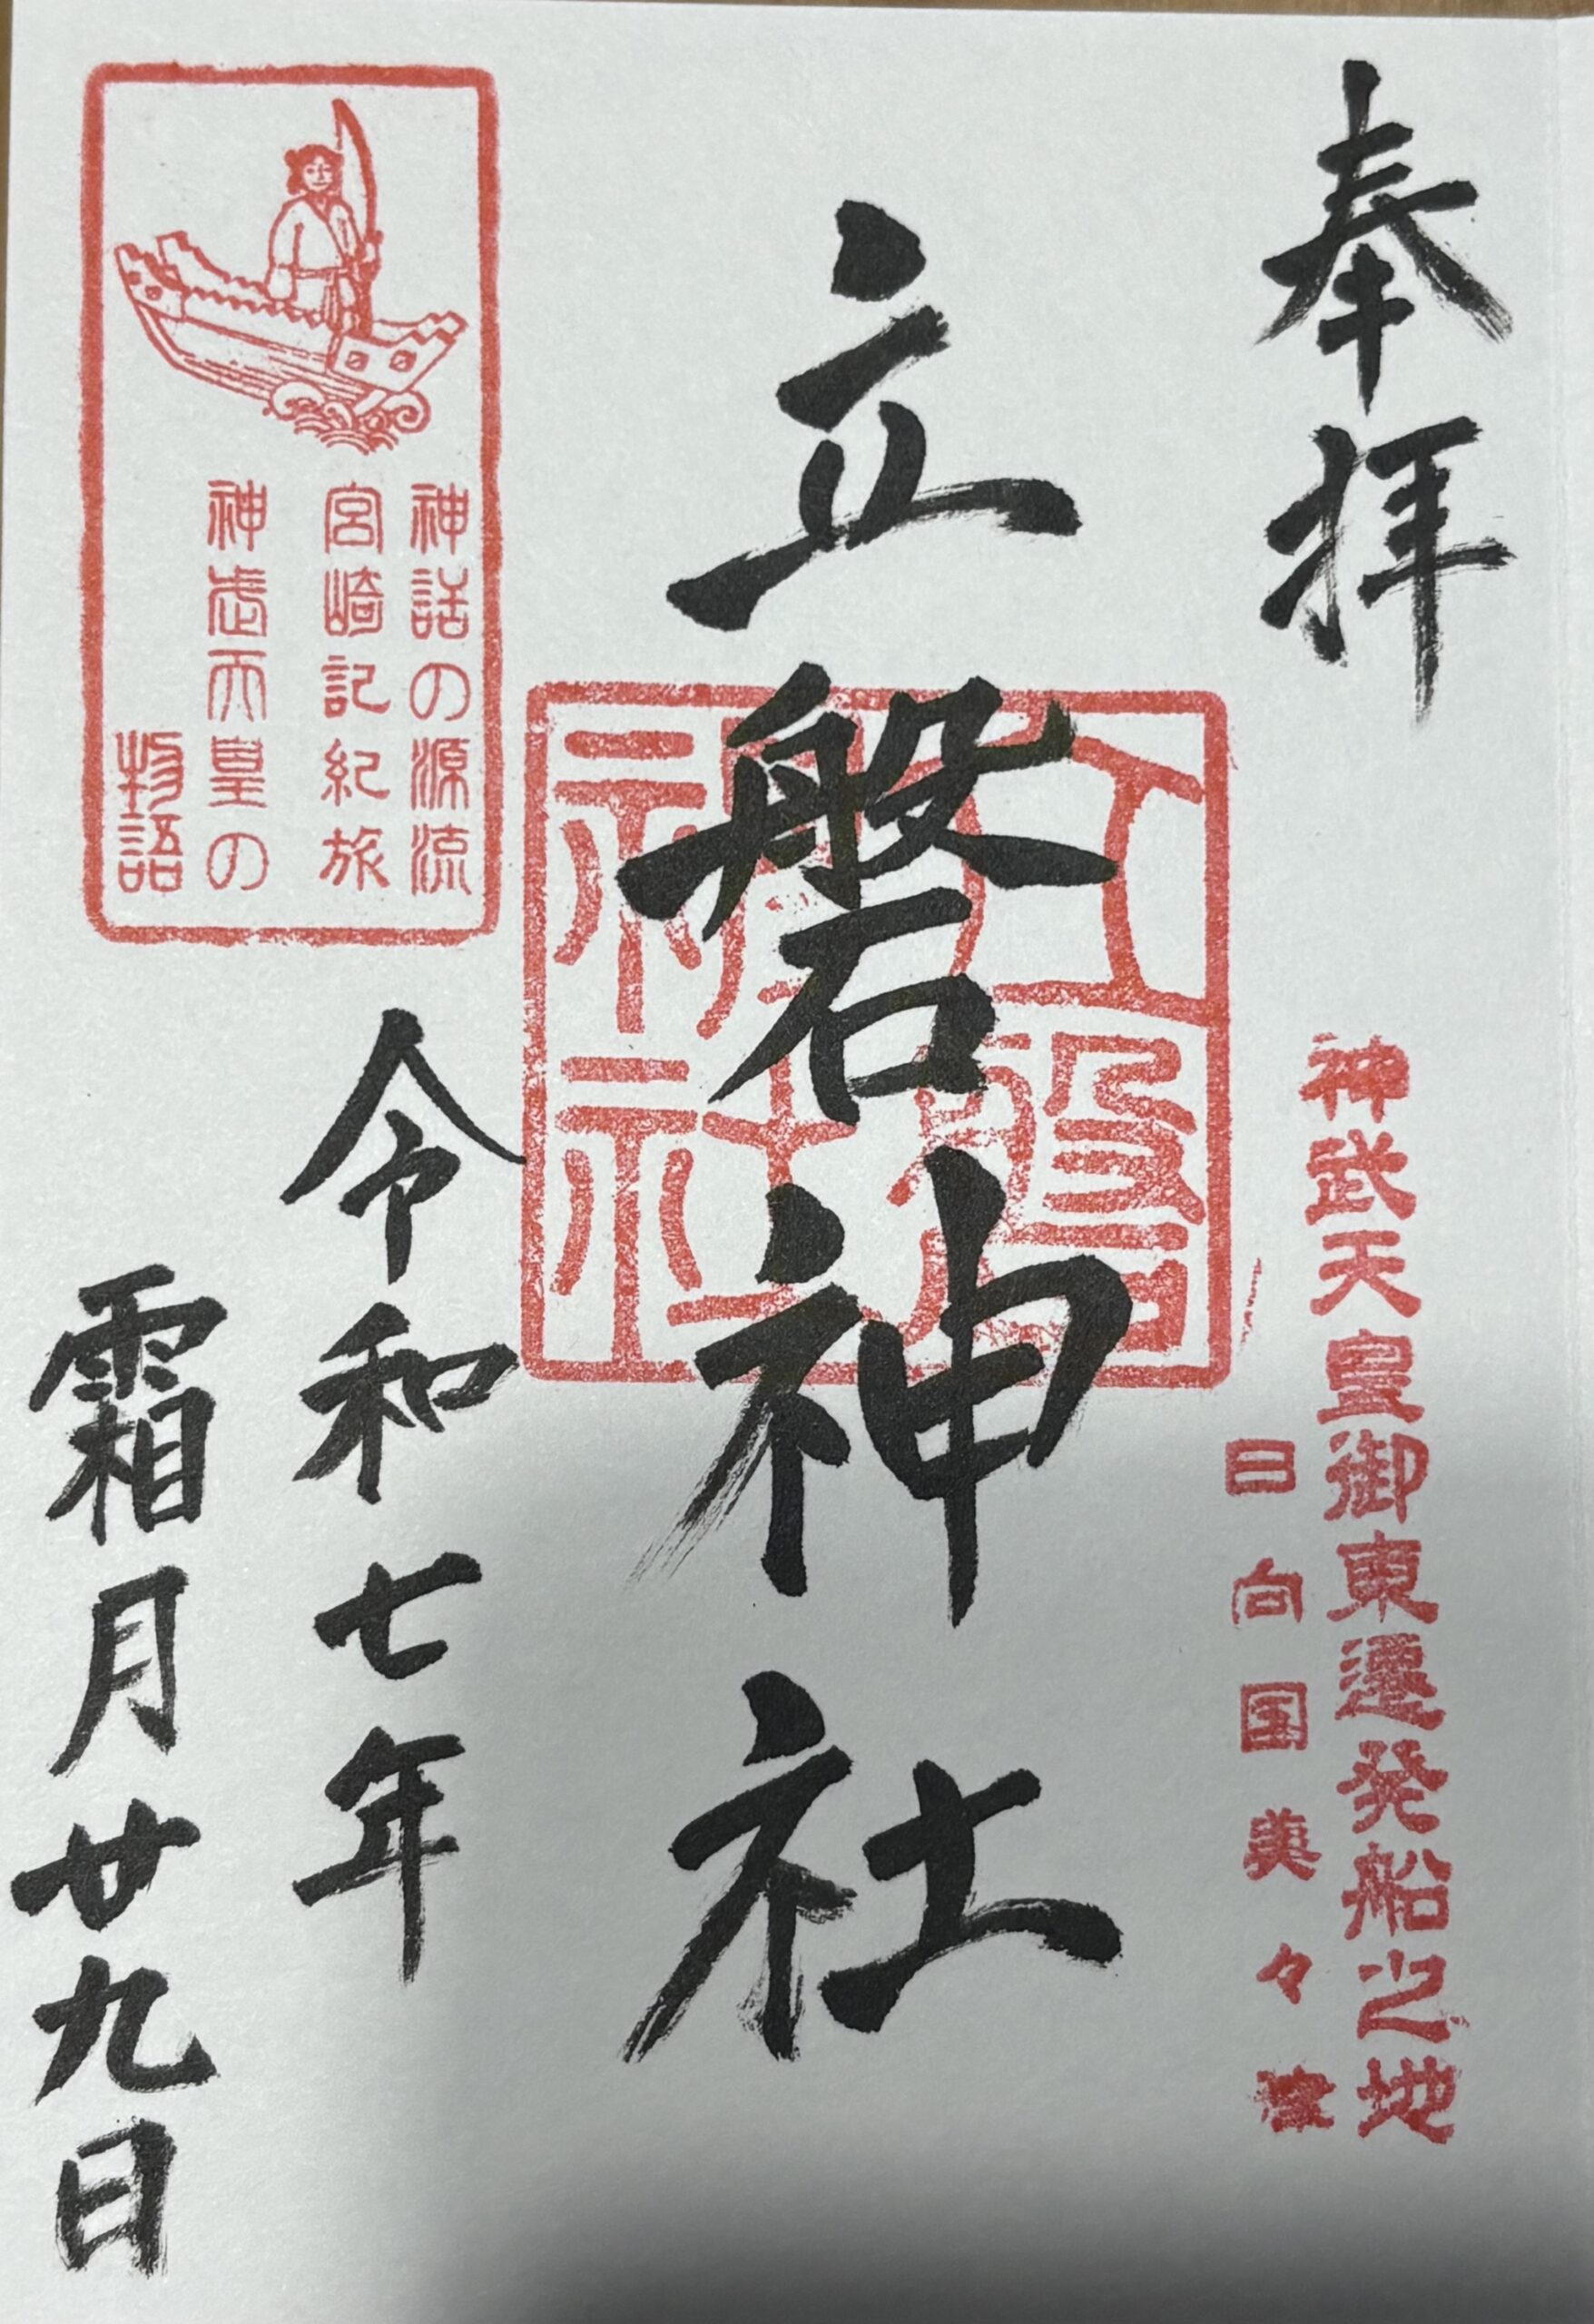 奉拝
神武天皇御東遷発船之地
日向国美々津
立磐神社
立磐
神社
神話の源流
宮崎記紀旅
神武天皇の
物語
令和七年
霜月廿九日